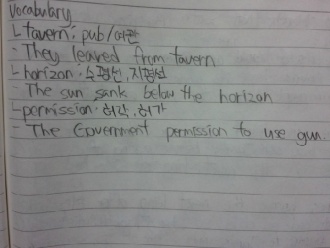 vocabulary
tavern: pub/여관
They leaved from tavern
horizon: 수평선, 지평선
The sun sank below the horizon
permission: 허락, 허가
The Government permission to use gun.